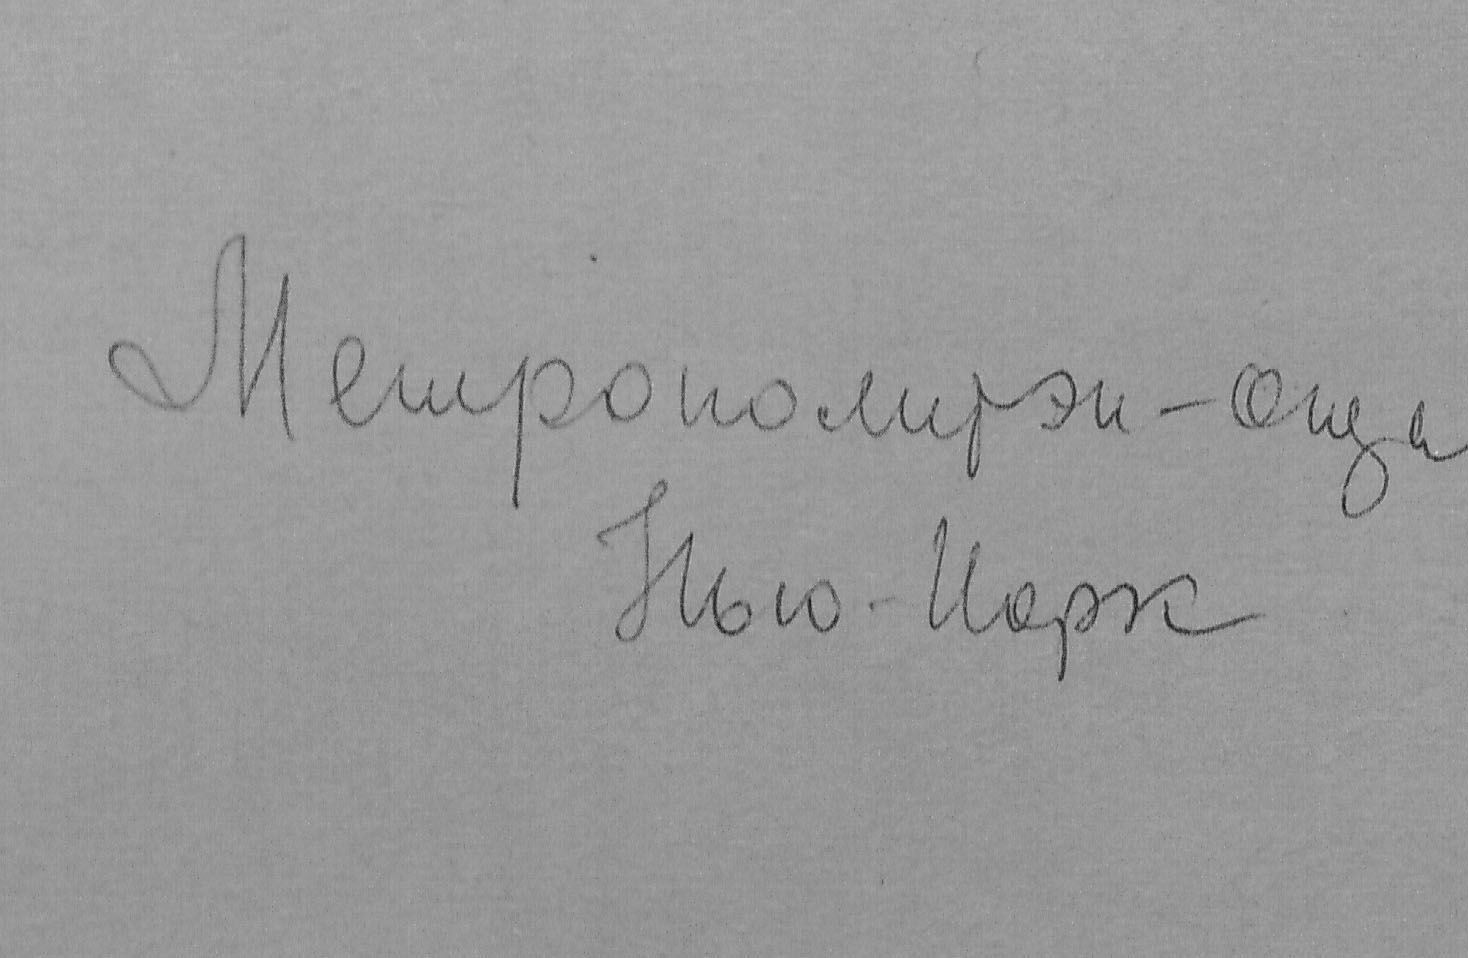 Метрополитэн-опера
Нью-Йорк